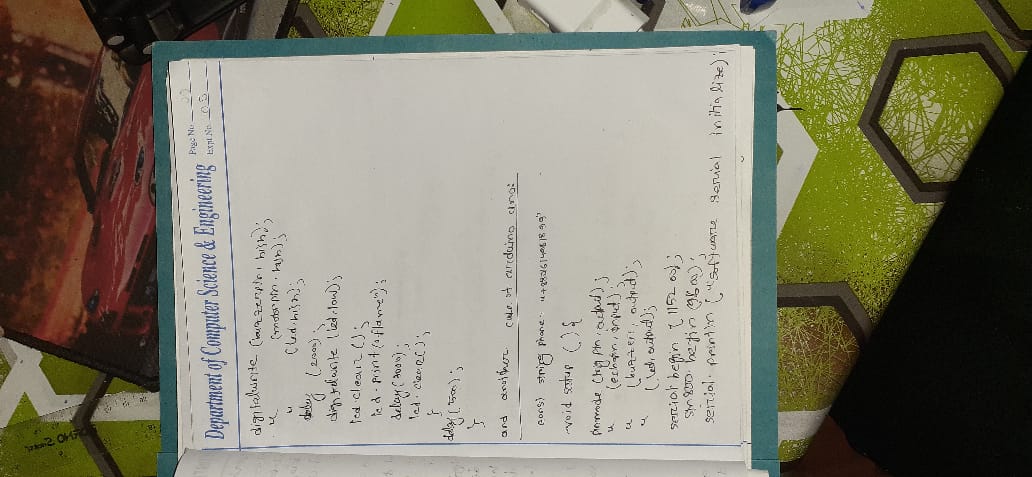 Department of Computer Science & Engineering
Page No
Expt. No 03
digitalwrite (buzzerpin, high);
" (motorpin, high);
" (led, high);
delay (2000);
digitalwrite (led, low);
lcd clear ();
lcd.print("flame");
delay (7000);
lcd.clear();
}
delay(500);
}
and another code of arduino uno:
const string phone:
void setup () {
pinmode (trig pin, output);
" (echopin, input);
" (buzzer, output);
" output);
serial begin (115200);
begin (9600);
serial. println ("software serial initialize);